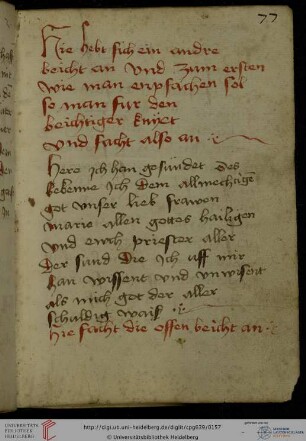 77
Hie hebt sich ein andre
beicht an und zům ersten
wie man enpfachen sol
so man fur den
beichtiger knüet
Und facht also an
Here ich han gesündet des
bekenne ich dem allmechtigē
got unser lieb frawen
marie allen gottes hailigen
und euch priester aller
der sünd die ich uff mir
han wissent und unwissent
als mich got der aller
schuldig waist
hie facht die offen beicht an
UNIVERSITÄTS-
BIBLIOTHEK
HEIDELBERG
http://digi.ub.uni-heidelberg.de/diglit/cpg639/0157
© Universitätsbibliothek Heidelberg